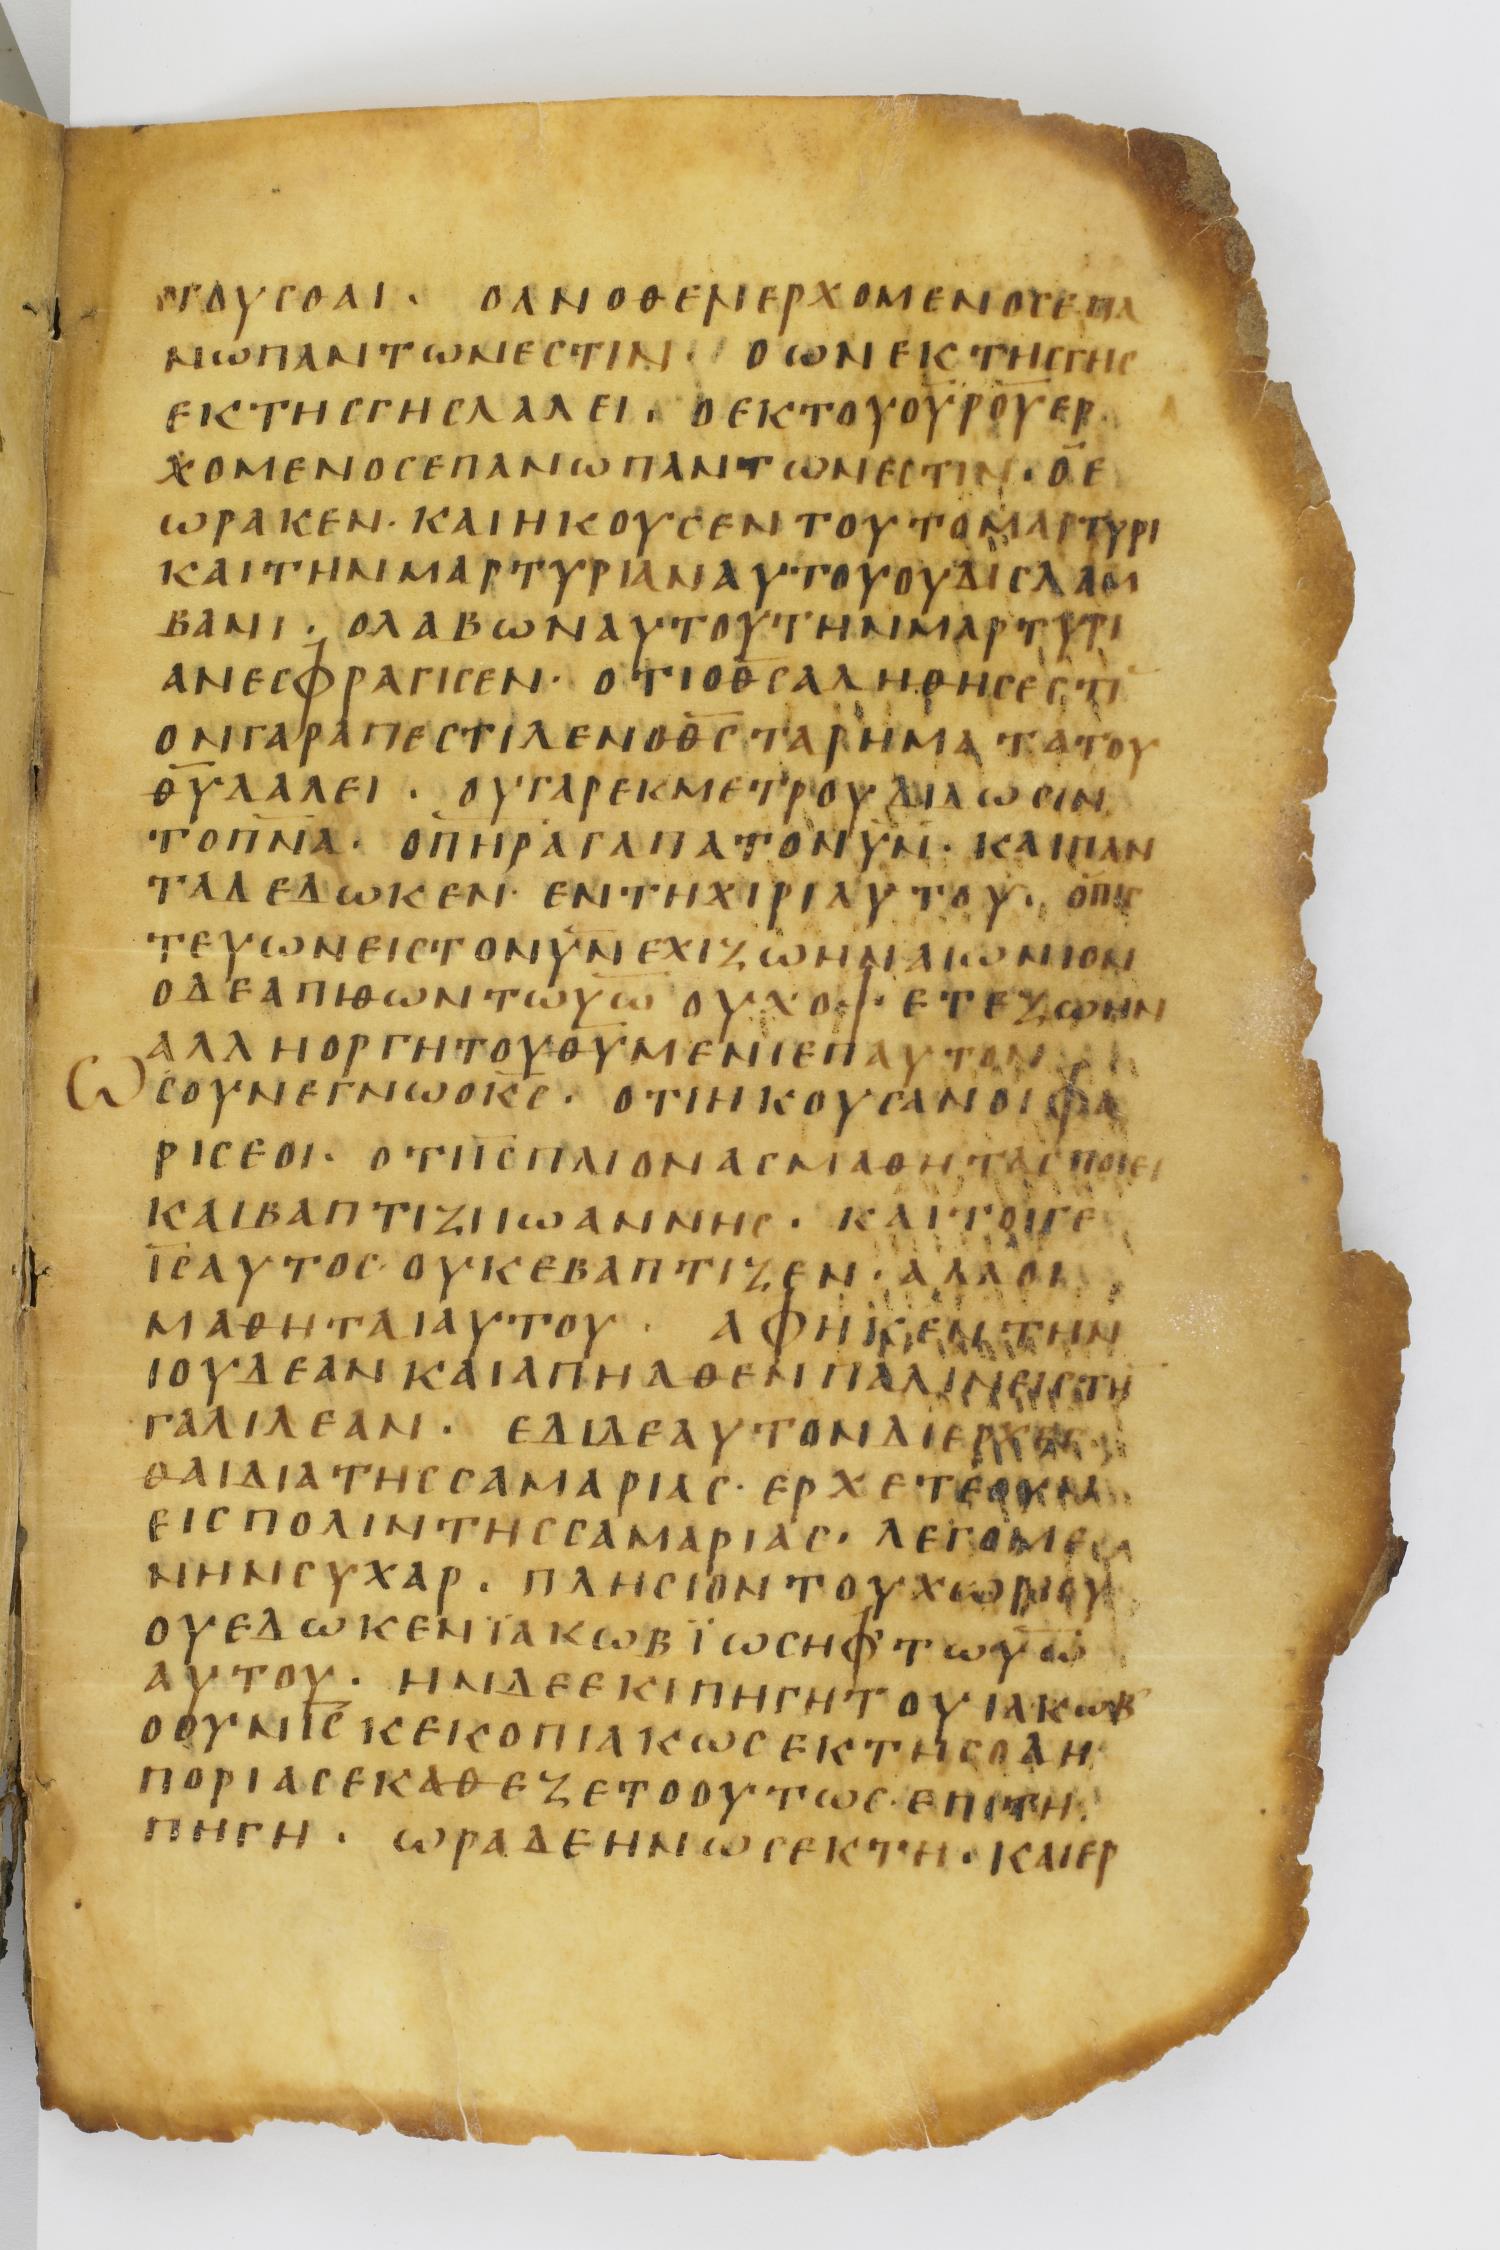 ΤΟΥСΘΑΙ · Ο ΑΝΟΘΕΝ ΕΡΧΟΜΕΝΟС ΕΠΑ
ΝΩ ΠΑΝΤΩΝ ΕСΤΙΝ · Ο ΩΝ ΕΚ ΤΗС ΓΗС
ΕΚ ΤΗС ΓΗС ΛΑΛΕΙ · Ο ΕΚ ΤΟΥ ΟΥ̅Ρ̅Ο̅Υ̅ ΕΡ
ΧΟΜΕΝΟС ΕΠΑΝΩ ΠΑΝΤΩΝ ΕСΤΙΝ · Ο Ε
ΩΡΑΚΕΝ · ΚΑΙ ΗΚΟΥСΕΝ ΤΟΥΤΟ ΜΑΡΤΥΡΙ
ΚΑΙ ΤΗΝ ΜΑΡΤΥΡΙΑΝ ΑΥΤΟΥ ΟΥΔΙС ΛΑΜ
ΒΑΝΙ · Ο ΛΑΒΩΝ ΑΥΤΟΥ ΤΗΝ ΜΑΡΤΥΡΙ
ΑΝ ΕСΦΡΑΓΙСΕΝ · ΟΤΙ Ο Θ̅С̅ ΑΛΗΘΗС ΕСΤΙ̅
ΟΝ ΓΑΡ ΑΠΕСΤΙΛΕΝ Ο Θ̅С̅ ΤΑ ΡΗΜΑΤΑ ΤΟΥ
Θ̅Υ̅ ΛΑΛΕΙ · ΟΥ ΓΑΡ ΕΚ ΜΕΤΡΟΥ ΔΙΔΩСΙΝ
ΤΟ Π̅Ν̅Α̅ · Ο Π̅Η̅Ρ̅ ΑΓΑΠΑ ΤΟΝ Υ̅Ν̅ · ΚΑΙ ΠΑΝ
ΤΑ ΔΕΔΩΚΕΝ · ΕΝ ΤΗ ΧΙΡΙ ΑΥΤΟΥ · Ο ΠΙС
ΤΕΥΩΝ ΕΙС ΤΟΝ Υ̅Ν̅ ΕΧΙ ΖΩΗΝ ΑΙΩΝΙΟΝ
Ο ΔΕ ΑΠΙΘΩΝ ΤΩ Υ̅Ω̅ ΟΥΧ ΟΨΕΤΕ ΖΩΗΝ
ΑΛΛ Η ΟΡΓΗ ΤΟΥ Θ̅Υ̅ ΜΕΝΙ ΕΠ ΑΥΤΟΝ
ΩС ΟΥΝ ΕΓΝΩ Ο Κ̅С̅ · ΟΤΙ ΗΚΟΥСΑΝ ΟΙ ΦΑ
ΡΙСΕΟΙ · ΟΤΙ Ι̅С̅ ΠΛΙΟΝΑС ΜΑΘΗΤΑС ΠΟΙΕΙ
ΚΑΙ ΒΑΠΤΙΖΙ ΙΩΑΝΝΗС · ΚΑΙΤΟΙΓΕ
Ι̅С̅ ΑΥΤΟС ΟΥΚ ΕΒΑΠΤΙΖΕΝ · ΑΛΛ ΟΙ
ΜΑΘΗΤΑΙ ΑΥΤΟΥ · ΑΦΗΚΕΝ ΤΗΝ
ΙΟΥΔΕΑΝ ΚΑΙ ΑΠΗΛΘΕΝ ΠΑΛΙΝ ΕΙС ΤΗ̅
ΓΑΛΙΛΕΑΝ · ΕΔΙ ΔΕ ΑΥΤΟΝ ΔΙΕΡΧΕС
ΘΑΙ ΔΙΑ ΤΗС СΑΜΑΡΙΑС · ΕΡΧΕΤΕ ΟΥΝ
ΕΙС ΠΟΛΙΝ ΤΗС СΑΜΑΡΙΑС · ΛΕΓΟΜΕ
ΝΗΝ СΥΧΑΡ · ΠΛΗСΙΟΝ ΤΟΥ ΧΩΡΙΟΥ
ΟΥ ΕΔΩΚΕΝ ΪΑΚΩΒ ΪΩСΗΦ ΤΩ Υ̅Ω̅
ΑΥΤΟΥ · ΗΝ ΔΕ ΕΚΙ ΠΗΓΗ ΤΟΥ ΙΑΚΩΒ
Ο ΟΥΝ Ι̅С̅ ΚΕΚΟΠΙΑΚΩС ΕΚ ΤΗС ΟΔΗ
ΠΟΡΙΑС ΕΚΑΘΕΖΕΤΟ ΟΥΤΩС ΕΠΙ ΤΗ
ΠΗΓΗ · ΩΡΑ ΔΕ ΗΝ ΩС ΕΚΤΗ · ΚΑΙ ΕΡ